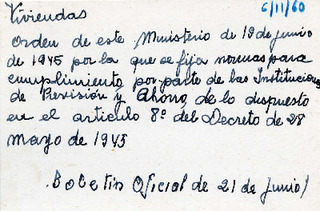 Viviendas
6/11/60
Orden de este Ministerio de 18 de junio
de 1945 por la que se fija normas para
cumplimiento por parte de las Institucions
de Previsión y Ahorro, de lo dispuesto
en el articulo 8º del Decreto de 28
mayo de 1945
(Boletin Oficial de 21 de junio)